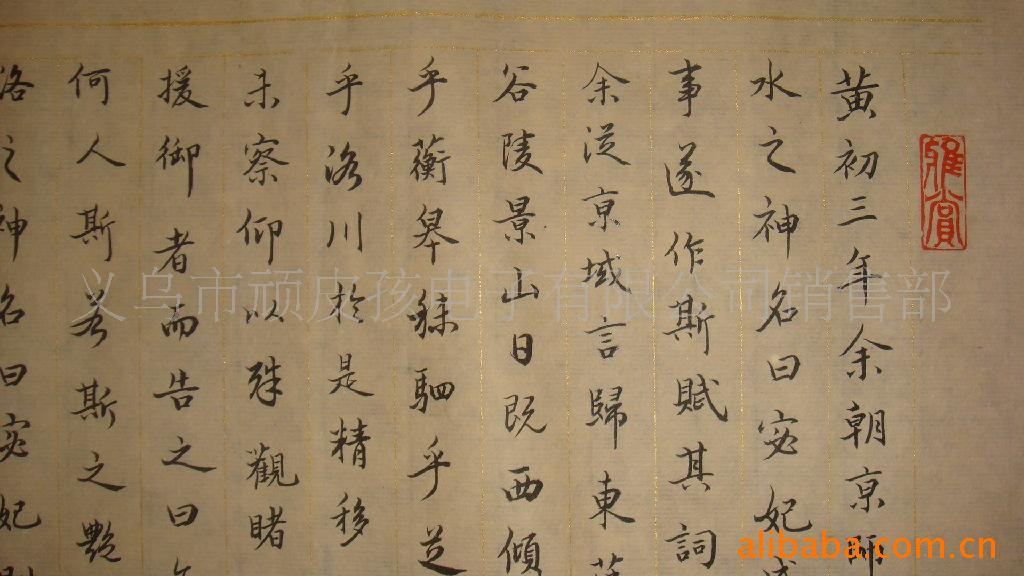 雅賞
黄初三年余朝京師
水之神名曰宓妃
事遂作斯賦其詞
余従京域言歸東
谷陵景山日既西傾
乎蘅皋稣駟乎芝
乎洛川於是精移
未察仰以殊觀睹
援御者而告之曰
何人斯若斯之艷
洛之神名曰宓妃
义乌市顽皮孩电子有限公司销售部
alibaba.com.cn